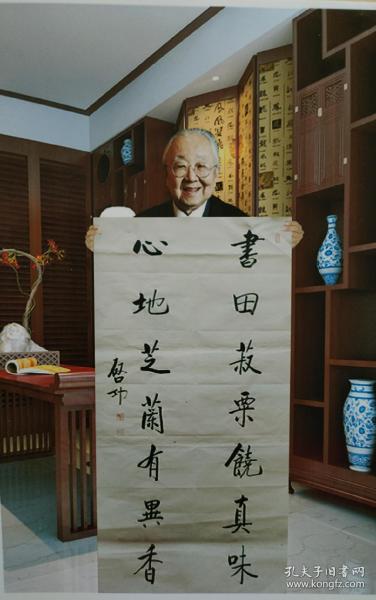 書田菽粟饒真味
心地芝蘭有異香
啓功
孔夫子旧书网
www.kongfz.com